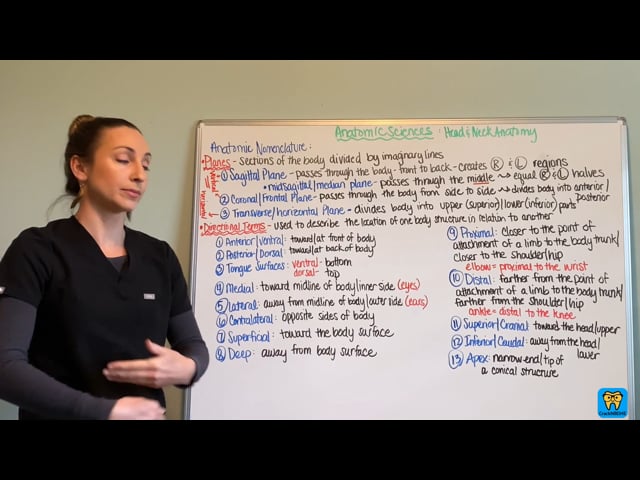 Anatomic Sciences: Head & Neck Anatomy
Anatomic Nomenclature:
• Planes - sections of the body divided by imaginary lines
① Sagittal Plane - passes through the body - front to back - creates Ⓡ & Ⓛ regions
• midsagittal/median plane - passes through the middle → equal Ⓡ & Ⓛ halves
② Coronal/Frontal Plane - passes through the body from side to side → divides body into anterior/
posterior
③ Transverse/horizontal Plane - divides body into upper (superior)/lower (inferior) parts
• Directional Terms - used to describe the location of one body structure in relation to another
① Anterior/Ventral: toward/at front of body
② Posterior/Dorsal: toward/at back of body
③ Tongue Surfaces: ventral - bottom
dorsal - top
④ Medial: toward midline of body/inner side (eyes)
⑤ lateral: away from midline of body/outer side (ears)
⑥ Contralateral: opposite sides of body
⑦ Superficial: toward the body surface
⑧ Deep: away from body surface
⑨ Proximal: closer to the point of
attachment of a limb to the body trunk/
closer to the shoulder/hip
elbow = proximal to the wrist
⑩ Distal: farther from the point of
attachment of a limb to the body trunk/
farther from the shoulder/hip
ankle = distal to the knee
⑪ Superior/Cranial: toward the head/upper
⑫ Inferior/Caudal: away from the head/
lower
⑬ Apex: narrow end/tip of
a conical structure